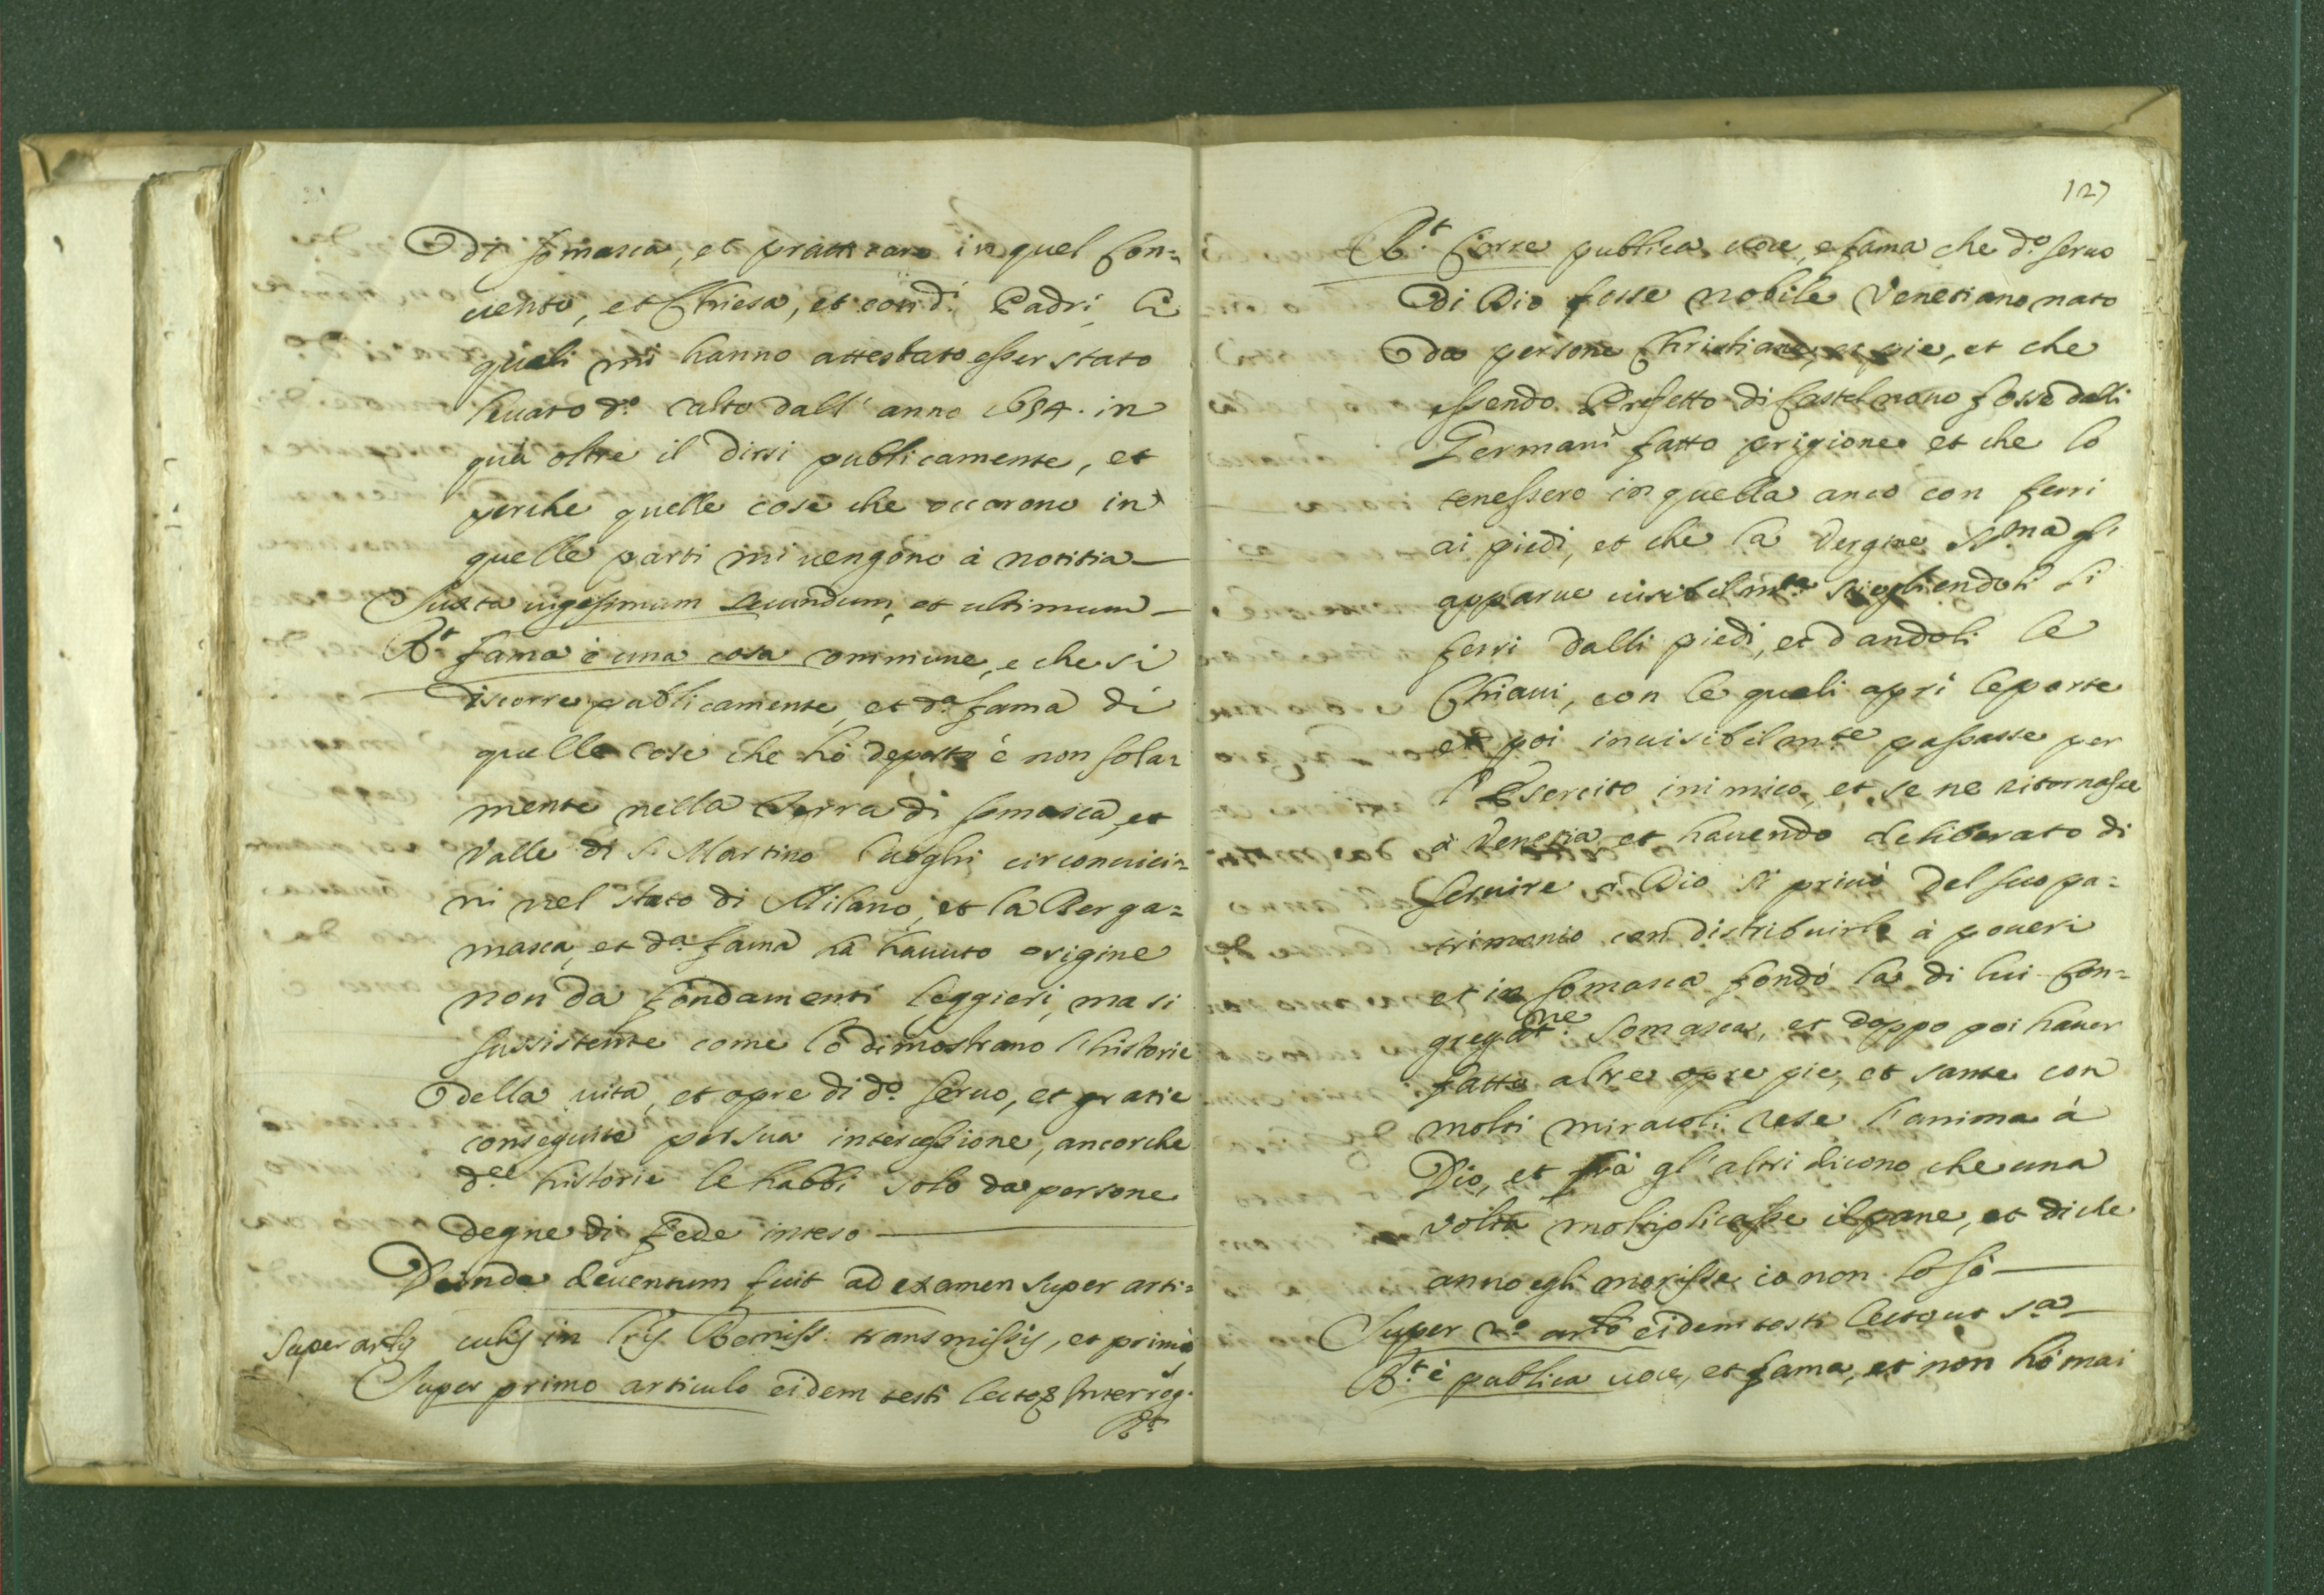 di Somasca, et pratticare in quel Con=
vento, et Chiesa, et con d.i Padri, li
quali mi hanno attestato esser stato
levato d.o culto dall' anno 1634. in
quà oltre il dirsi publicamente, et
perche quelle cose che occorono in
quelle parti mi vengono à notitia
Iuxta vigesimum secundum, et ultimum
R.t fama è una cosa commune, e che si
discorre publicamente, et d.a fama di
quelle cose che hò deposto è non sola=
mente nella Terra di Somasca, et
Valle di S. Martino luoghi circonvici=
ni nel stato di Milano, et la Berga=
masca, et d.a fama hà havuto origine
non da fondamenti leggieri, ma si
sussistente come lo dimostrano l'historie
della vita, et opre di d.o Servo, et gratie
conseguite per sua intercessione, ancorche
d.e historie le habbi solo da persone
degne di fede inteso
Deinde deventum fuit ad examen super arti=
Super artis
culis in Lris Remiss. transmissis, et primo
Super primo articulo eidem testi lecto Interrog.
R.t
127
R.t Corre publica voce, e fama che d.o servo
di Dio fosse nobile Venetiano nato
da persone Christiane, et pie, et che
essendo Prefetto di Castelnovo fosse dalli
Germani fatto prigione et che lo
tenessero in quella anco con ferri
ai piedi, et che la Vergine SS.ma gli
apparve visibilm.te sciogliendoli li
ferri dalli piedi, et dandoli le
Chiavi, con le quali aprì le porte
et poi invisibilm.te passasse per
l'Esercito inimico, et se ne ritornasse
à Venetia, et havendo deliberato di
servire à Dio si privò del suo pa=
trimonio con distribuirlo à poveri
et in Somasca fondò la di lui Con=
gregat.ne Somasca, et doppo poi haver
fatto altre opre pie, et sante con
molti miracoli rese l'anima à
Dio, et frà gl'altri dicono che una
volta moltiplicasse il pane, et di che
anno egli morisse io non lo sò
Super 2.o arto eidem testi lecto ut s.a
R.t è publica voce, et fama, et non hò mai